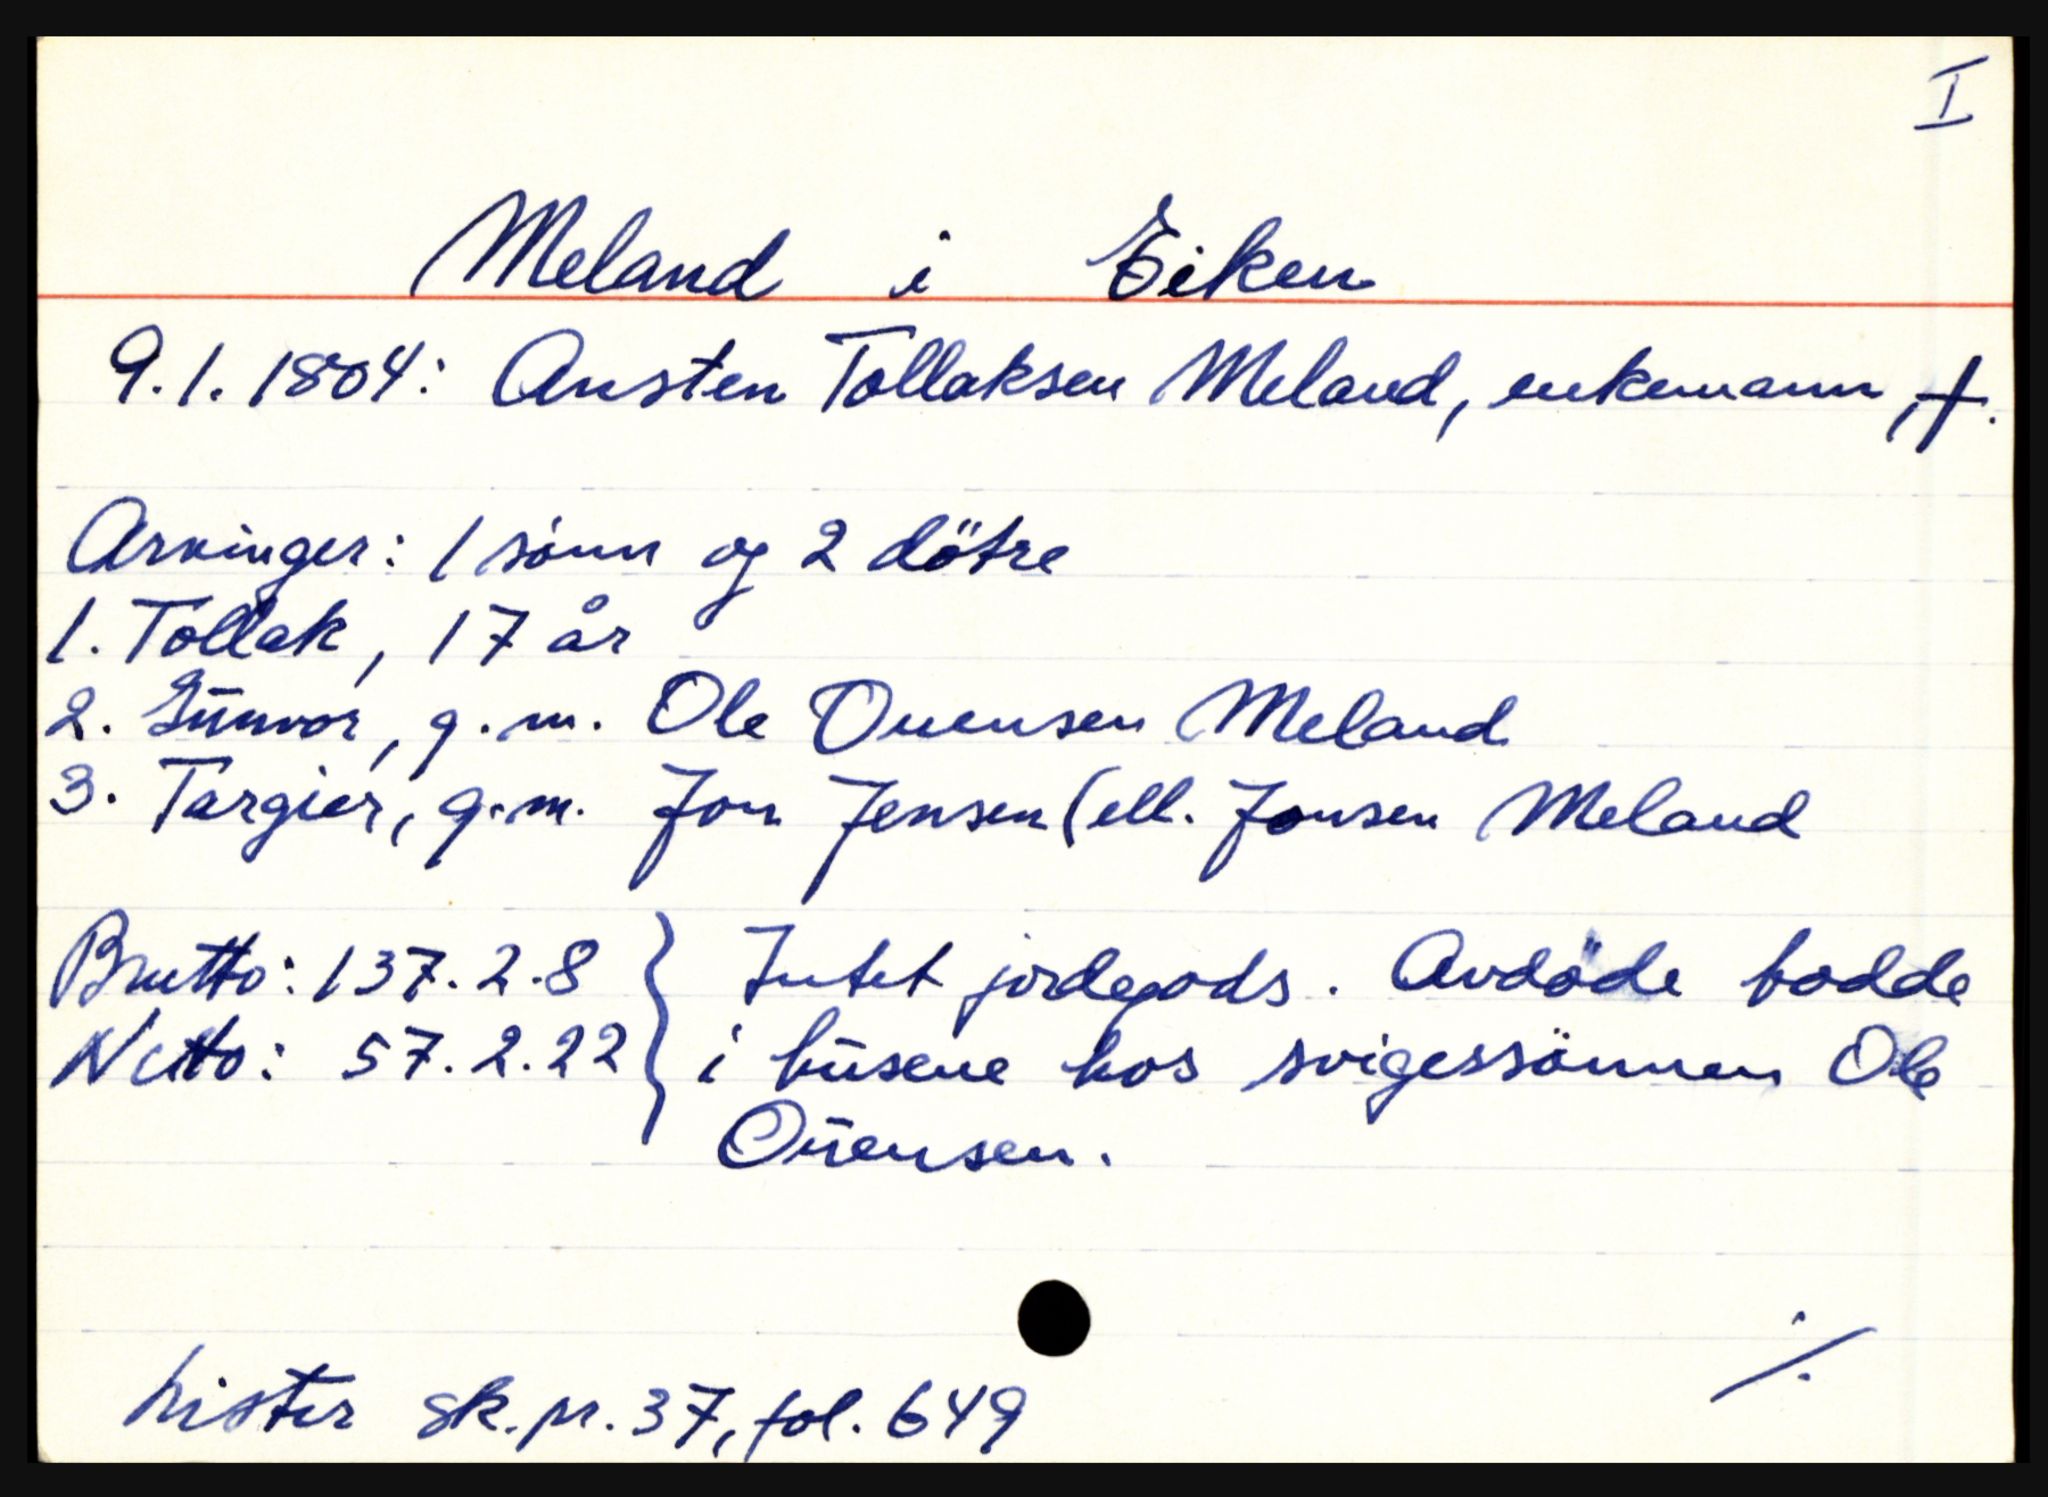 I
Meland i Eiken
9.1.1804: Austen Tollaksen Meland, enkemann, †.
Arvinger: 1 sönn og 2 dötre
1. Tollak, 17 år
2. Gunvor, g.m. Ole Ouensen Meland
3. Targier, g.m. Jon Jensen (ell. Jonsen Meland
Brutto: 137.2.8 } Intet jordegods. Avdöde bodde
Netto: 57.2.22 } i husene hos svigersönnen Ole
Ouensen.
./.
Lister sk.pr. 37, fol. 649